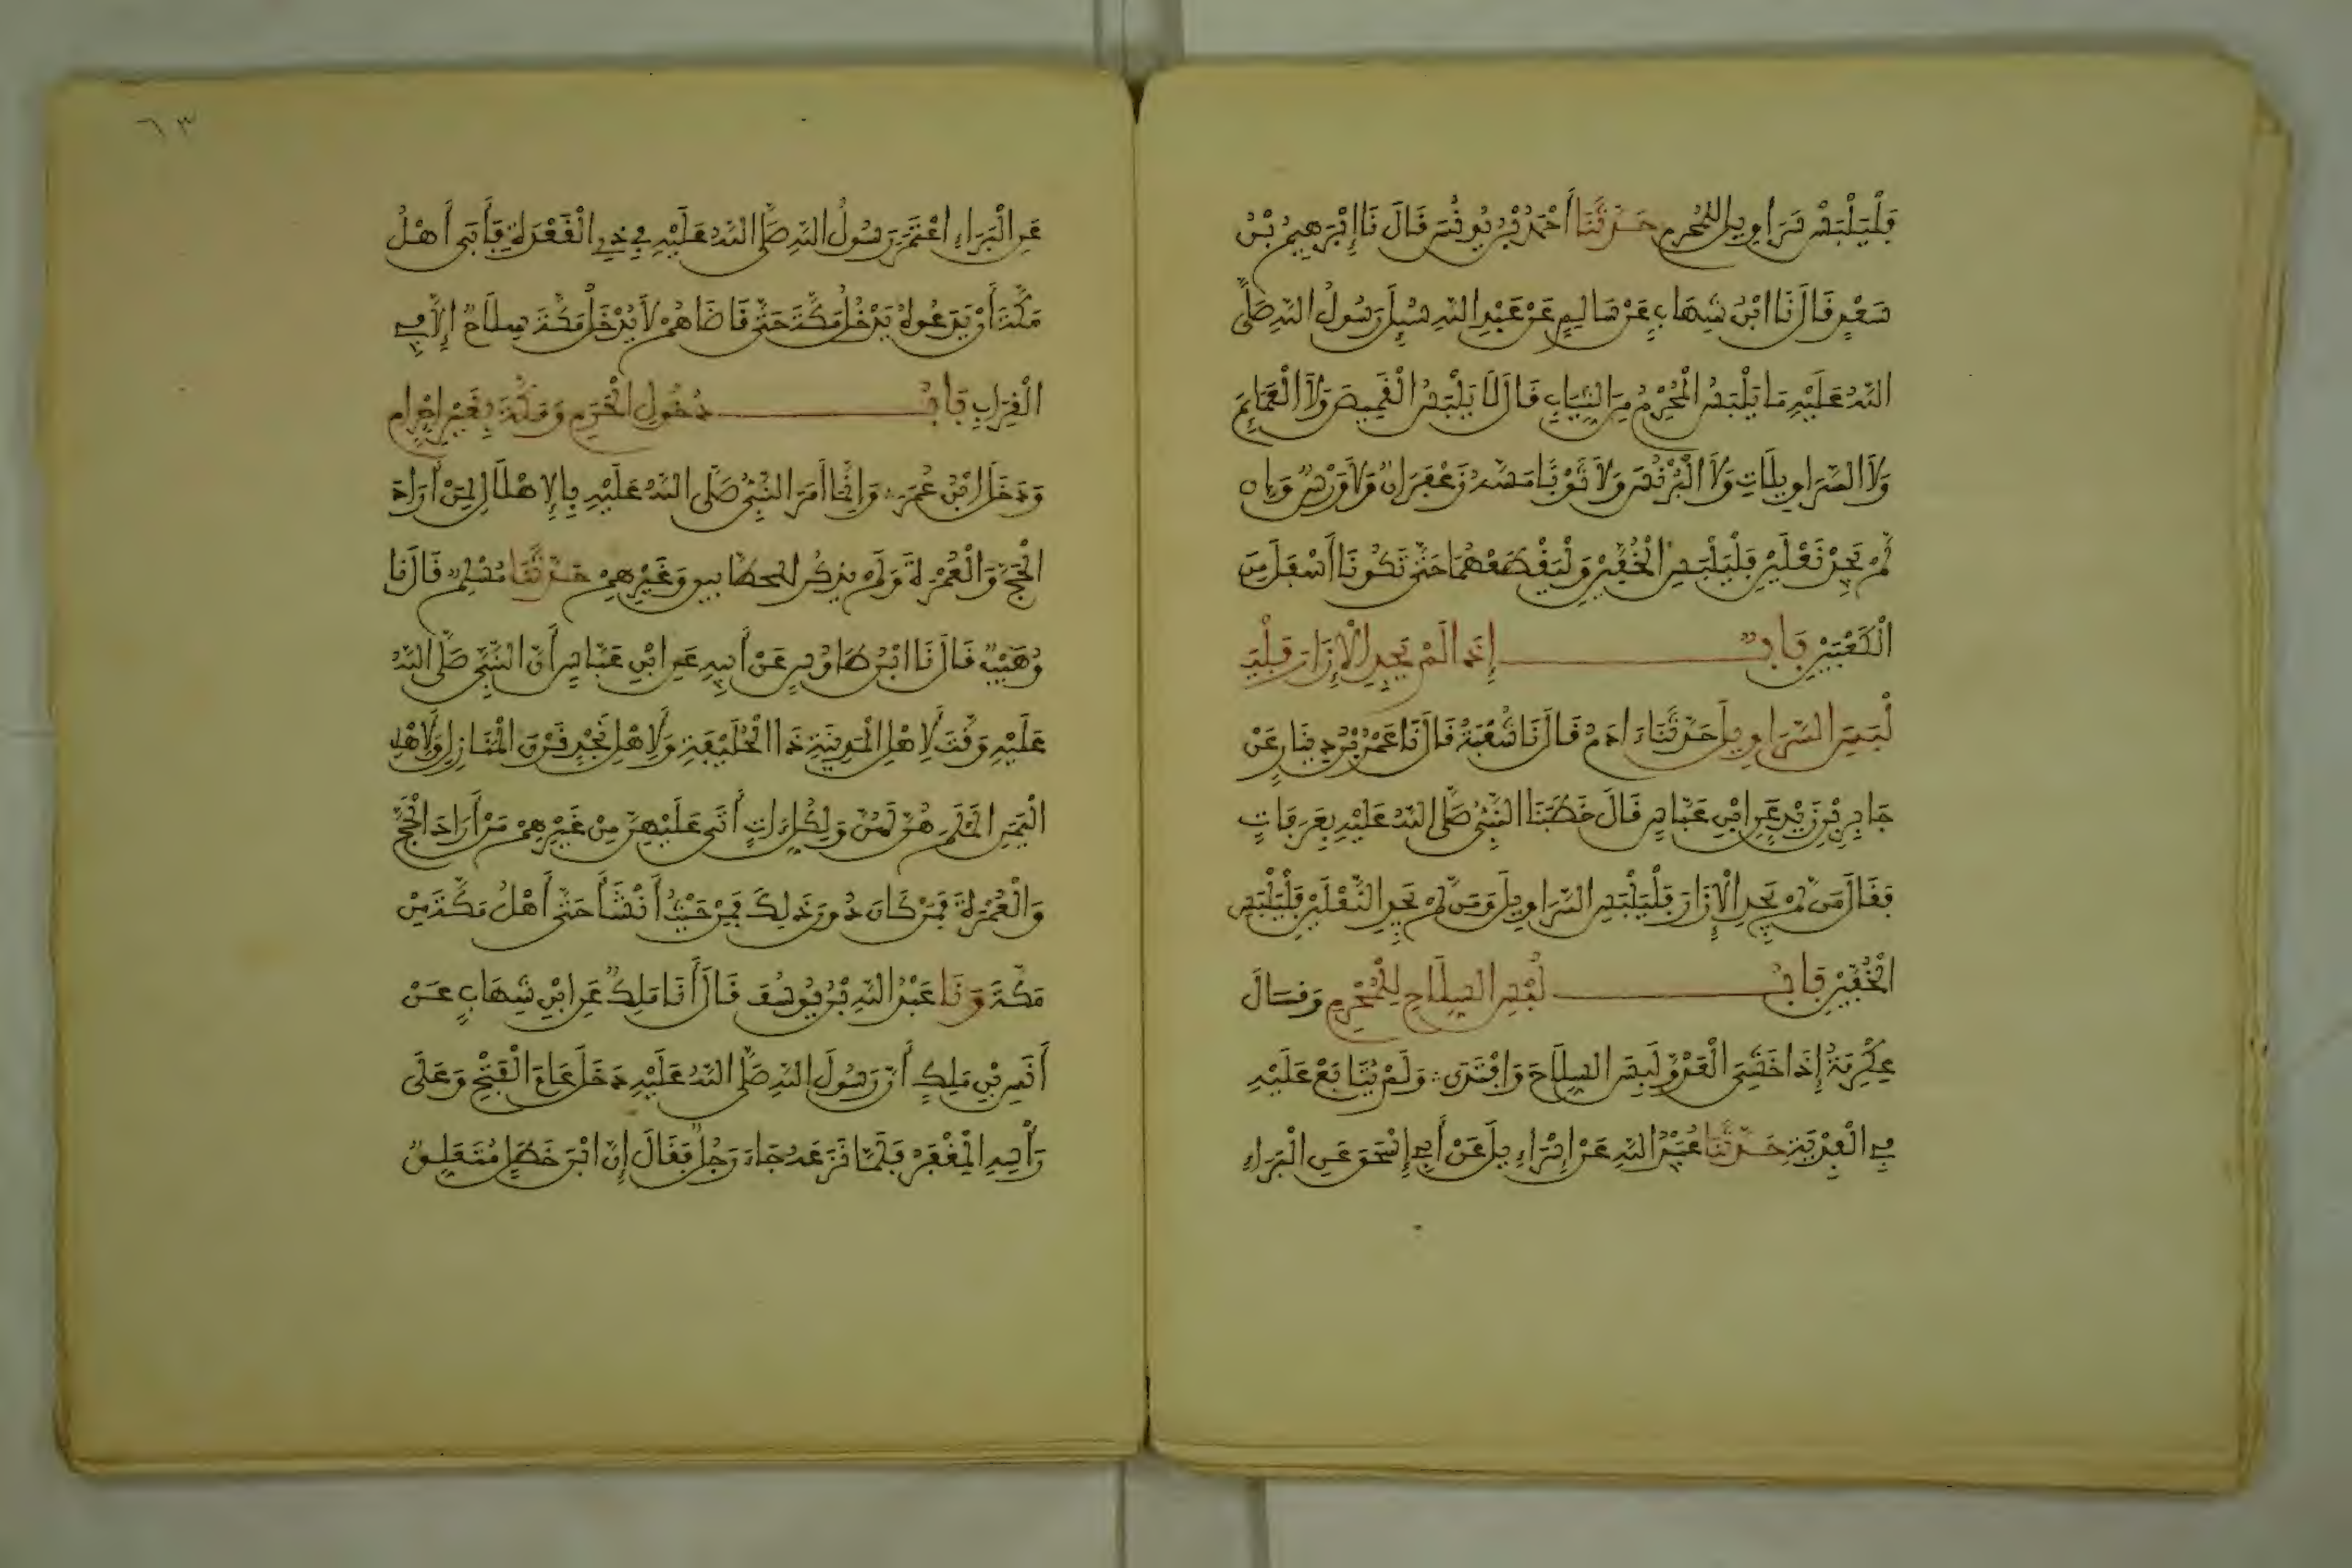 فَلْيَلْبَسْ سَرَاوِيلَ لِلْمُحْرِمِ حَدَّثَنَا أَحْمَدُ بْنُ يُونُسَ قَالَ نَا إِبْرَهِيمُ بْنُ
سَعْدٍ قَالَ نَا ابْنُ شِهَابٍ عَنْ سَالِمٍ عَنْ عَبْدِ اللَّهِ سُئِلَ رَسُولُ اللَّهِ صَلَّى
اللَّهُ عَلَيْهِ مَا يَلْبَسُ الْمُحْرِمُ مِنَ الثِّيَابِ قَالَ لَا يَلْبَسُ الْقَمِيصَ وَلَا الْعَمَائِمَ
وَلَا السَّرَاوِيلَاتِ وَلَا الْبُرْنُسَ وَلَا ثَوْبًا مَسَّهُ زَعْفَرَانٌ وَلَا وَرْسٌ وَإِن
لَّمْ يَجِدْ نَعْلَيْنِ فَلْيَلْبَسِ الْخُفَّيْنِ وَلْيَقْطَعْهُمَا حَتَّى تَكُونَا أَسْفَلَ مِنَ
الْكَعْبَيْنِ بَابٌ إِذَا لَمْ يَجِدِ الْإِزَارَ فَلْيَ
لْبَسِ السَّرَاوِيلَ حَدَّثَنَا ءَادَمُ قَالَ نَا شُعْبَةُ قَالَ نَا عَمْرُو بْنُ دِينَارٍ عَنْ
جَابِرِ بْنِ زَيْدٍ عَنِ ابْنِ عَبَّاسٍ قَالَ خَطَبَنَا النَّبِيُّ صَلَّى اللَّهُ عَلَيْهِ بِعَرَفَاتٍ
فَقَالَ مَن لَّمْ يَجِدِ الْإِزَارَ فَلْيَلْبَسِ السَّرَاوِيلَ وَمَن لَّمْ يَجِدِ النَّعْلَيْنِ فَلْيَلْبَسِ
الْخُفَّيْنِ بَابُ لُبْسِ السِّلَاحِ لِلْمُحْرِمِ وَقَالَ
عِكْرِمَةُ إِذَا خَشِيَ الْعَدُوَّ لَبِسَ السِّلَاحَ وَافْتَدَى وَلَمْ يُتَابَعْ عَلَيْهِ
فِي الْفِدْيَةِ حَدَّثَنَا عُبَيْدُ اللَّهِ عَنْ إِسْرَاءِيلَ عَنْ أَبِي إِسْحَقَ عَنِ الْبَرَاءِ
٦٣
عَنِ الْبَرَاءِ اعْتَمَرَ رَسُولُ اللَّهِ صَلَّى اللَّهُ عَلَيْهِ فِي ذِي الْقَعْدَةِ فَأَبَى أَهْلُ
مَكَّةَ أَنْ يَدَعُوهُ يَدْخُلُ مَكَّةَ حَتَّى قَاضَاهُمْ لَا يُدْخِلُ مَكَّةَ سِلَاحًا إِلَّا فِي
الْقِرَابِ بَابُ دُخُولِ الْحَرَمِ وَمَكَّةَ بِغَيْرِ إِحْرَامٍ
وَدَخَلَ ابْنُ عُمَرَ وَإِنَّمَا أَمَرَ النَّبِيُّ صَلَّى اللَّهُ عَلَيْهِ بِالْإِهْلَالِ لِمَنْ أَرَادَ
الْحَجَّ وَالْعُمْرَةَ وَلَمْ يَذْكُرِ الْحَطَّابِينَ وَغَيْرِهِمْ حَدَّثَنَا مُسْلِمٌ قَالَ نَا
وُهَيْبٌ قَالَ نَا ابْنُ طَاوُسٍ عَنْ أَبِيهِ عَنِ ابْنِ عَبَّاسٍ أَنَّ النَّبِيَّ صَلَّى اللَّهُ
عَلَيْهِ وَقَّتَ لِأَهْلِ الْمَدِينَةِ ذَا الْحُلَيْفَةِ وَلِأَهْلِ نَجْدٍ قَرْنَ الْمَنَازِلِ وَلِأَهْلِ
الْيَمَنِ الَمْلَمَ هُنَّ لَهُنَّ وَلِكُلِّ ءَاتٍ أَتَى عَلَيْهِنَّ مِنْ غَيْرِهِمْ مَنْ أَرَادَ الْحَجَّ
وَالْعُمْرَةَ فَمَنْ كَانَ دُونَ ذَلِكَ فَمِنْ حَيْثُ أَنْشَأَ حَتَّى أَهْلُ مَكَّةَ مِنْ
مَكَّةَ وَنَا عَبْدُ اللَّهِ بْنُ يُوسُفَ قَالَ أَنَا مَلِكٌ عَنِ ابْنِ شِهَابٍ عَنْ
أَنَسِ بْنِ مَلِكٍ أَنَّ رَسُولَ اللَّهِ صَلَّى اللَّهُ عَلَيْهِ دَخَلَ عَامَ الْفَتْحِ وَعَلَى
رَأْسِهِ الْمِغْفَرُ فَلَمَّا نَزَعَهُ جَاءَ رَجُلٌ فَقَالَ إِنَّ ابْنَ خَطَلٍ مُتَعَلِّقٌ